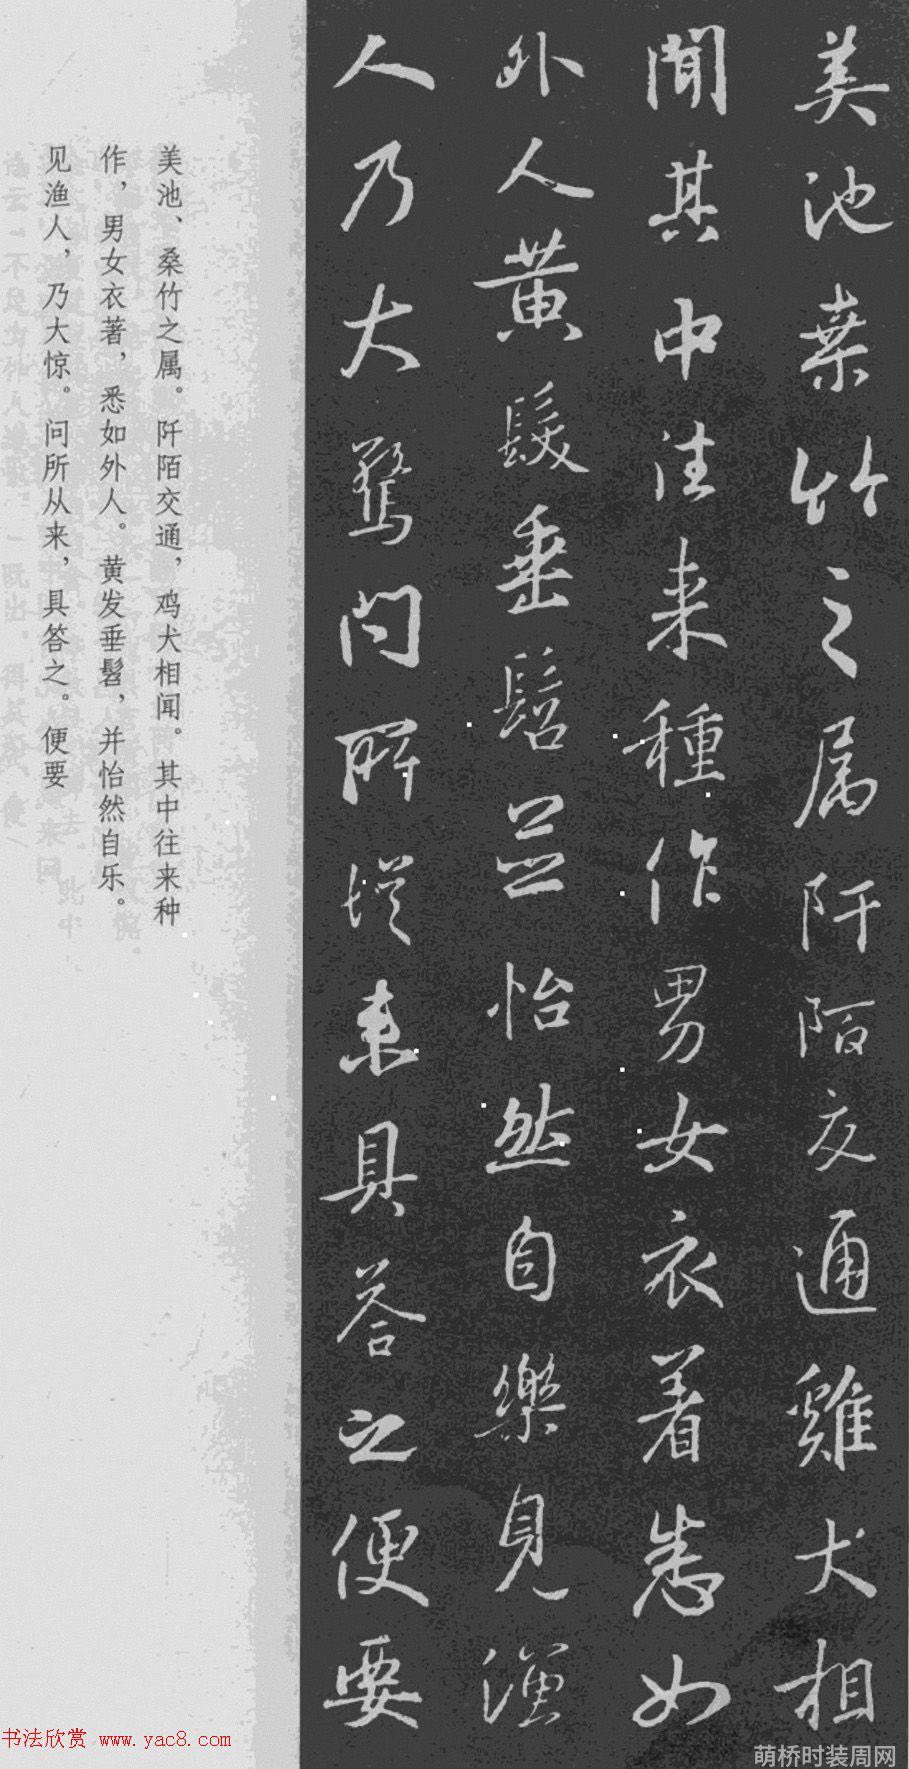 美池桒竹之属阡陌交通雞犬相
聞其中往来種作男女衣着悉如
外人黄髮垂髫並怡然自樂見漁
人乃大驚問所従来具荅之便要
美池、桑竹之属。阡陌交通，鸡犬相闻。其中往来种
作，男女衣著，悉如外人。黄发垂髫，并怡然自乐。
见渔人，乃大惊。问所从来，具答之。便要
书法欣赏 www.yac8.com
萌桥时装周网